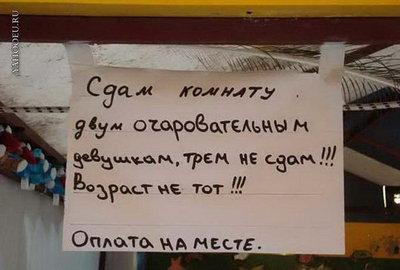 YAHOOEU.RU
Сдам комнату
двум очаровательным
девушкам, трем не сдам!!!
Возраст не тот!!!
Оплата на месте.